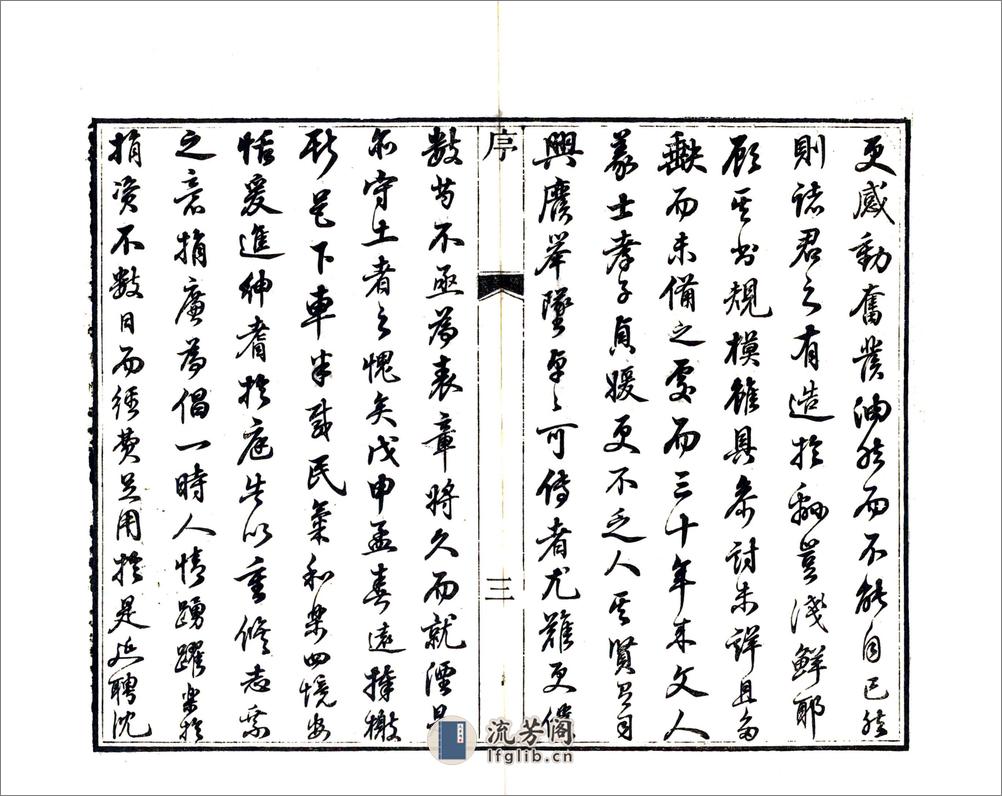 更感動奮發油然而不能自已然
則諸君之有造於邑豈淺鮮耶
顧其書規模雖具參討未詳且多
缺而未備之處而三十年來文人
義士孝子貞媛更不乏人其賢有司
興廢舉墜卓卓可傳者尤難更僕
序
三
數苟不亟為表章將久而就湮是
亦守土者之愧矣戊申孟春遠捧檄
斯邑下車半載民氣和樂四境安
恬爰進紳耆於庭告以重修志乘
之意捐廉為倡一時人情踴躍樂於
捐資不數日而經費足用於是延聘沈
流芳阁
lfglib.cn